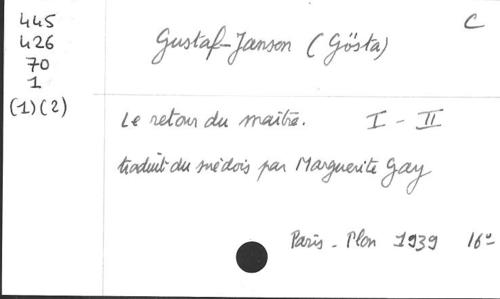 445
426
70
1
(1)(2)
C
Gustaf-Janson (Gösta)
Le retour du maître. I - II
traduit du suédois par Marguerite Gay
Paris - Plon 1939 16°